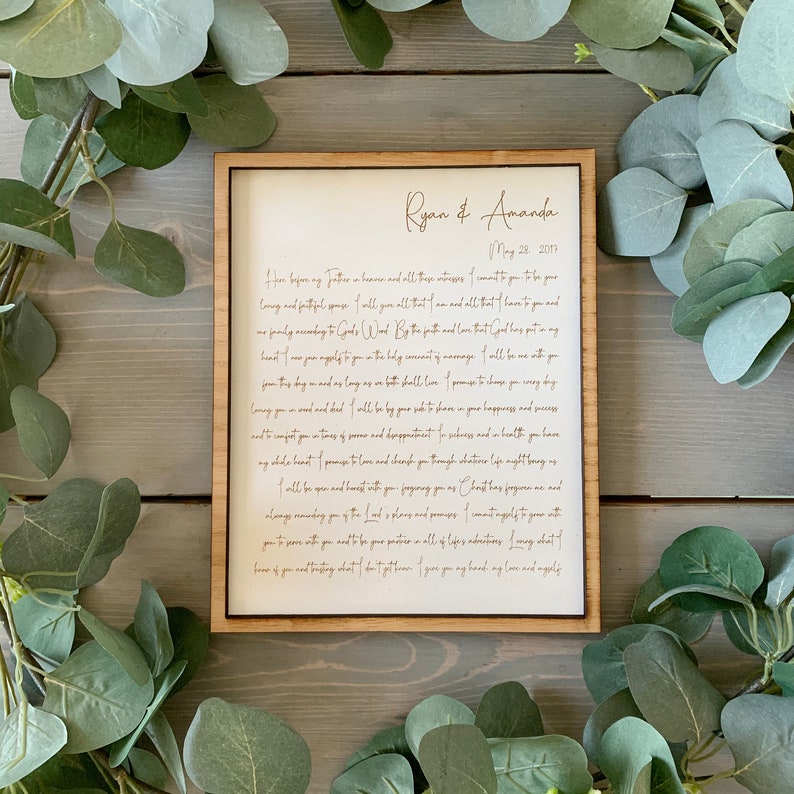 Ryan & Amanda
May 28, 2017
Here before my Father in heaven and all these witnesses I commit to you, to be your
loving and faithful spouse. I will give all that I am and all that I have to you and
our family according to God's Word. By the faith and love that God has put in my
heart I now join myself to you in the holy covenant of marriage. I will be one with you
from this day on and as long as we both shall live. I promise to choose you every day,
loving you in word and deed. I will be by your side to share in your happiness and success
and to comfort you in times of sorrow and disappointment. In sickness and in health, you have
my whole heart. I promise to love and cherish you through whatever life might bring us.
I will be open and honest with you, forgiving you as Christ has forgiven me and
always reminding you of the Lord's plans and promises. I commit myself to grow with
you, to serve with you and to be your partner in all of life's adventures. Loving what I
know of you and trusting what I don't yet know, I give you my hand, my love and myself.